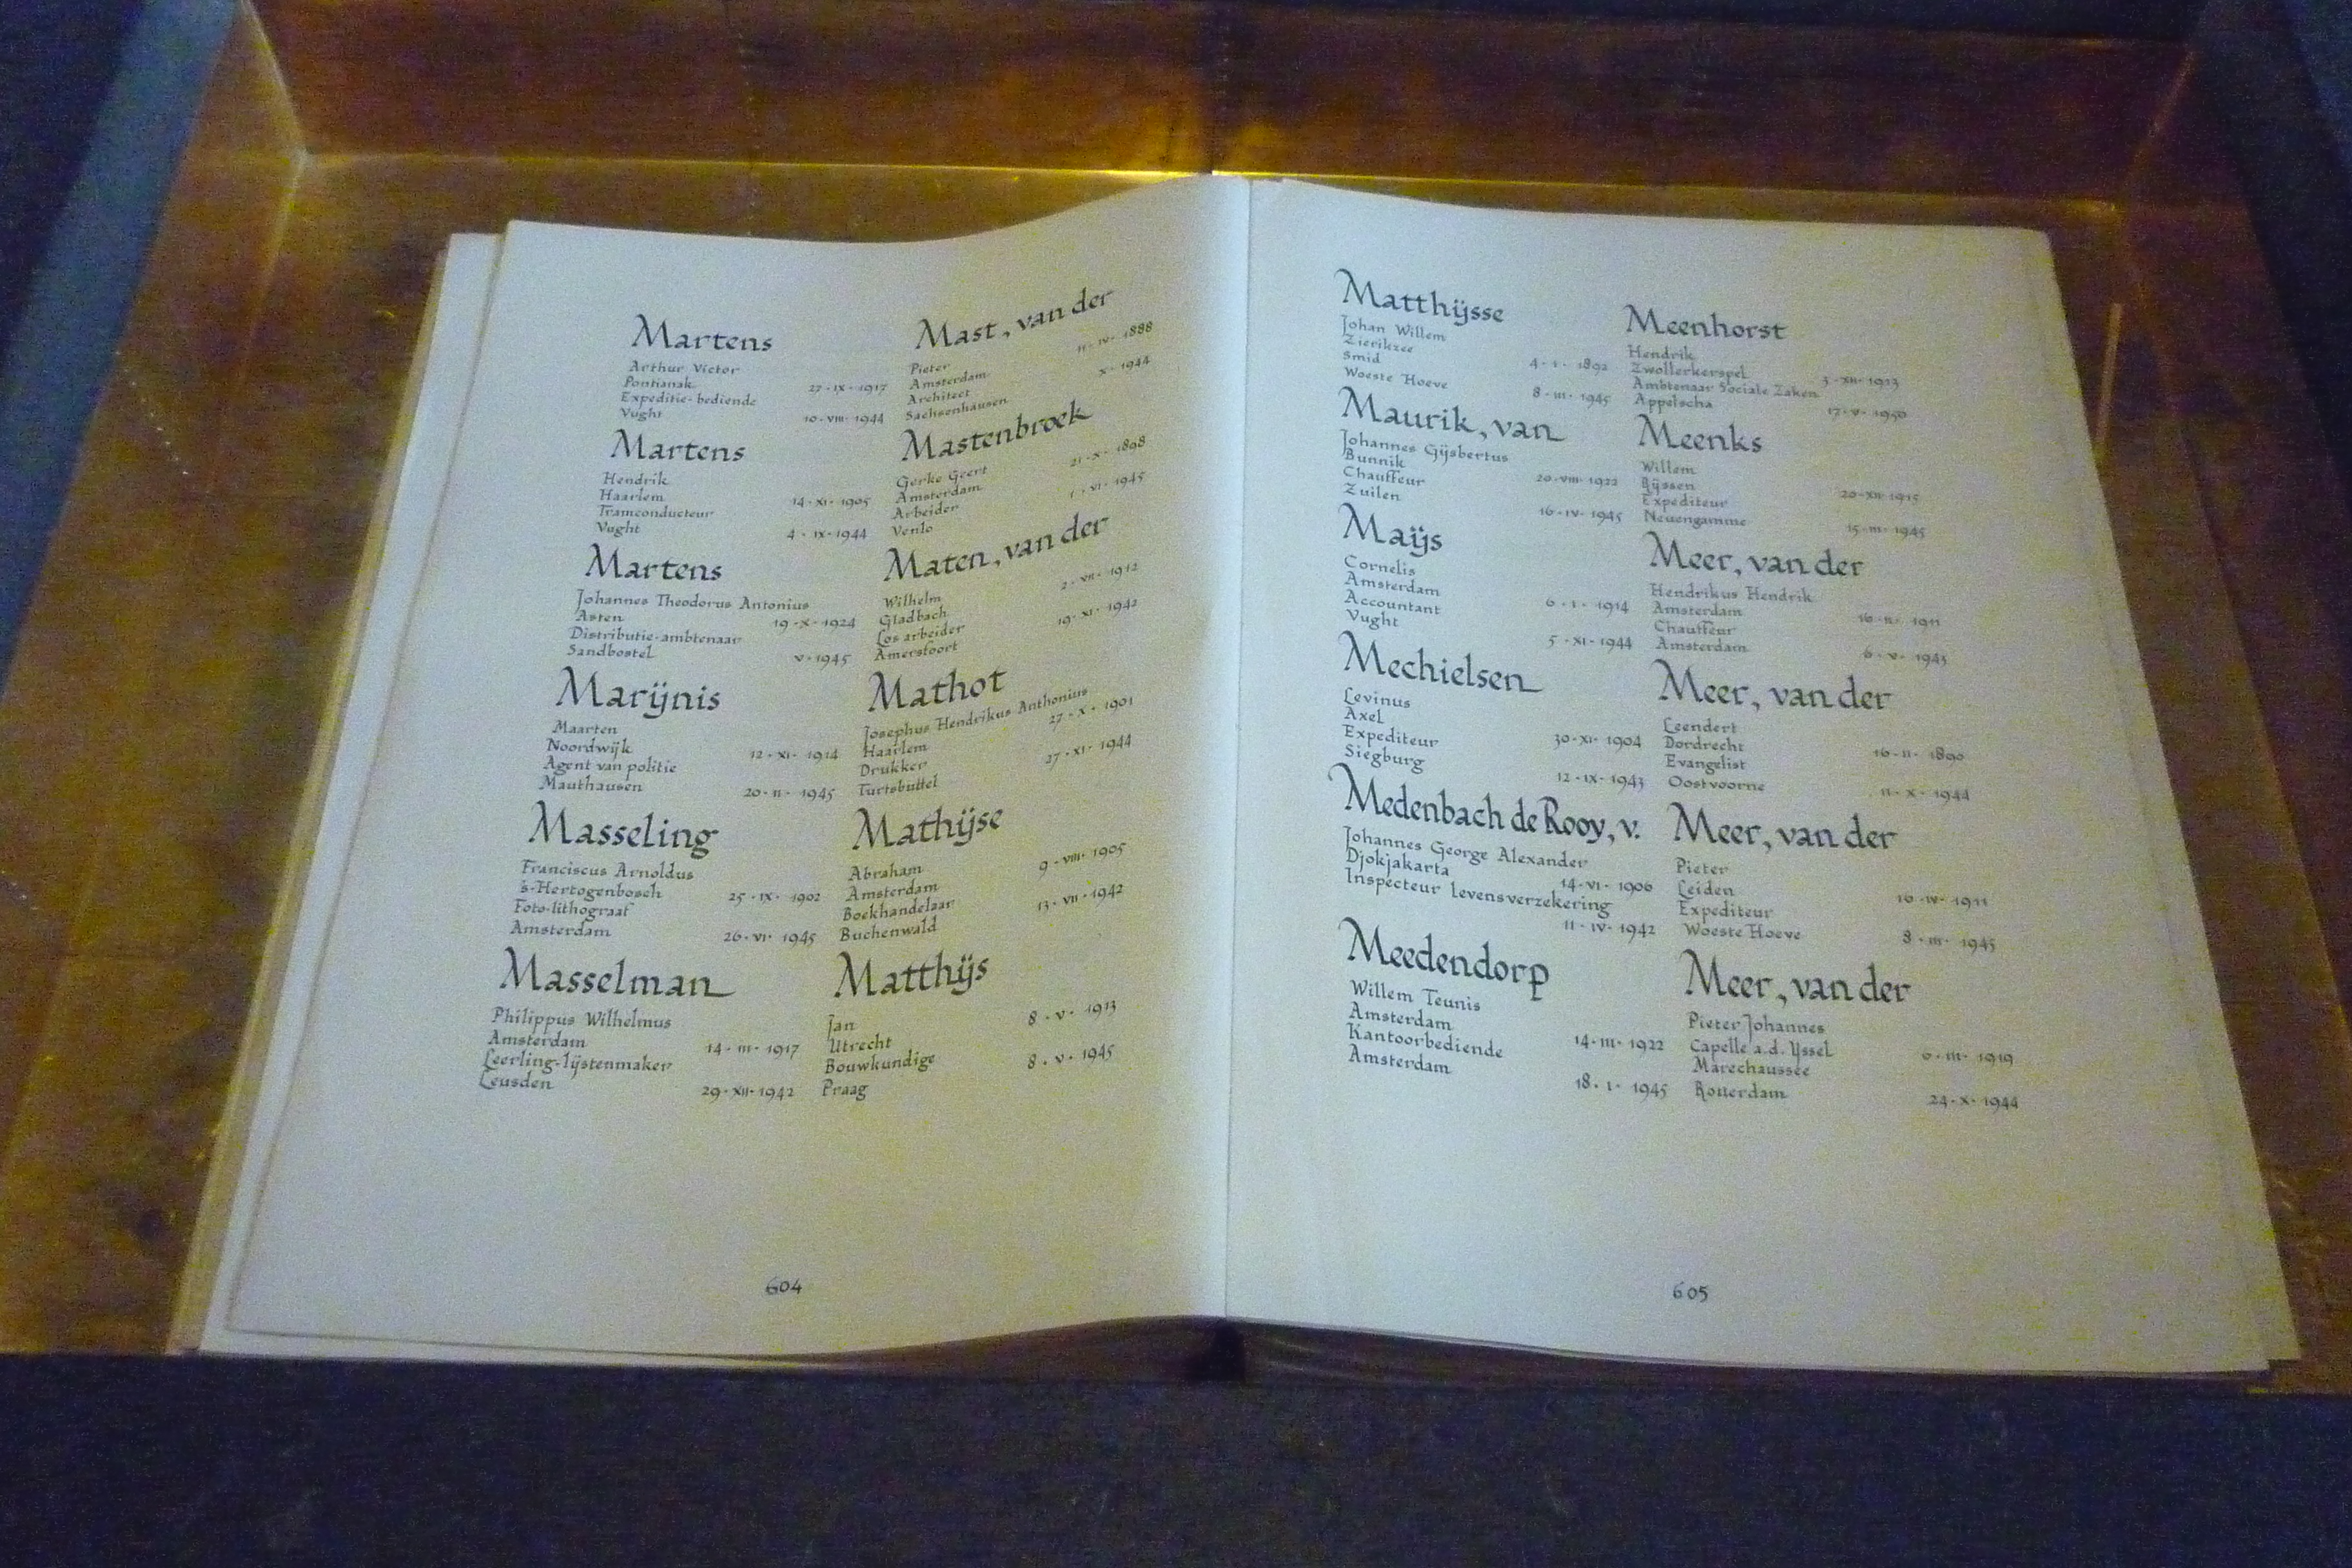 Martens
Arthur Victor
Pontianak 27-IX-1917
Expeditie-bediende
Vught 10-VIII-1944
Martens
Hendrik
Haarlem 14-XI-1905
Tramconducteur
Vught 4-IX-1944
Martens
Johannes Theodorus Antonius
Asten 19-X-1924
Distributie-ambtenaar
Sandbostel V-1945
Marijnis
Maarten
Noordwijk 12-XI-1914
Agent van politie
Mauthausen 20-II-1945
Masseling
Franciscus Arnoldus
's-Hertogenbosch 25-IX-1902
Foto-lithograaf
Amsterdam 26-VI-1945
Masselman
Philippus Wilhelmus
Amsterdam 14-III-1917
Leerling-lijstenmaker
Leusden 29-XII-1942
Mast, van der
Pieter
Amsterdam 11-IV-1888
Architect
Sachsenhausen X-1944
Mastenbroek
Gerke Geert
Amsterdam 21-X-1898
Arbeider
Venlo 1-VI-1945
Maten, van der
Wilhelm
Gladbach 2-VII-1912
Los arbeider
Amersfoort 19-XI-1942
Mathot
Josephus Hendrikus Anthonius
Haarlem 27-X-1901
Drukker
Turtsbuttel 27-XI-1944
Mathijse
Abraham
Amsterdam 9-VIII-1905
Boekhandelaar
Buchenwald 13-VII-1942
Matthijs
Jan
Utrecht 8-V-1913
Bouwkundige
Praag 8-V-1945
604
Matthijsse
Johan Willem
Zierikzee 4-1-1892
Smid
Woeste Hoeve 8-III-1945
Maurik, van
Johannes Gijsbertus
Bunnik 20-VIII-1922
Chauffeur
Zuilen 16-IV-1945
Maijs
Cornelis
Amsterdam 6-1-1914
Accountant
Vught 5-XI-1944
Mechielsen
Levinus
Axel 30-XI-1904
Expediteur
Siegburg 12-IX-1943
Medenbach de Rooy, v.
Johannes George Alexander
Djokjakarta 14-VI-1906
Inspecteur levensverzekering
11-IV-1942
Meedendorp
Willem Teunis
Amsterdam 14-III-1922
Kantoorbediende
Amsterdam 18-1-1945
Meenhorst
Hendrik
Zwollerkerspel 3-XII-1923
Ambtenaar Sociale Zaken
Appelscha 17-V-1950
Meenks
Willem
Rijssen 20-XII-1915
Expediteur
Neuengamme 15-III-1945
Meer, van der
Hendrikus Hendrik
Amsterdam 16-II-1911
Chauffeur
Amsterdam 6-V-1943
Meer, van der
Leendert
Dordrecht 16-II-1890
Evangelist
Oostvoorne 11-X-1944
Meer, van der
Pieter
Leiden 16-IV-1911
Expediteur
Woeste Hoeve 8-III-1945
Meer, van der
Pieter Johannes
Capelle a.d. IJssel 6-III-1919
Marechaussée
Rotterdam 24-X-1944
605